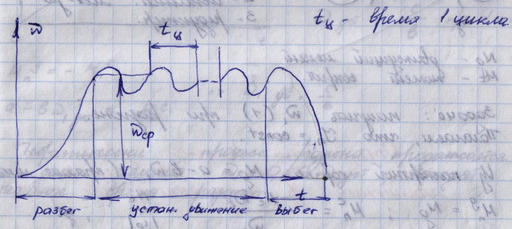 t_ц - время 1 цикла
ω
t_ц
ω_ср
t
разбег
устан. движение
выбег